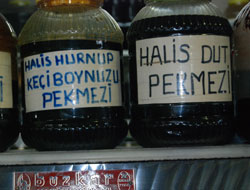 HALİS HURNUP
KEÇİ BOYNUZU
PEKMEZİ
HALİS DUT
PERMEZİ
buzkar